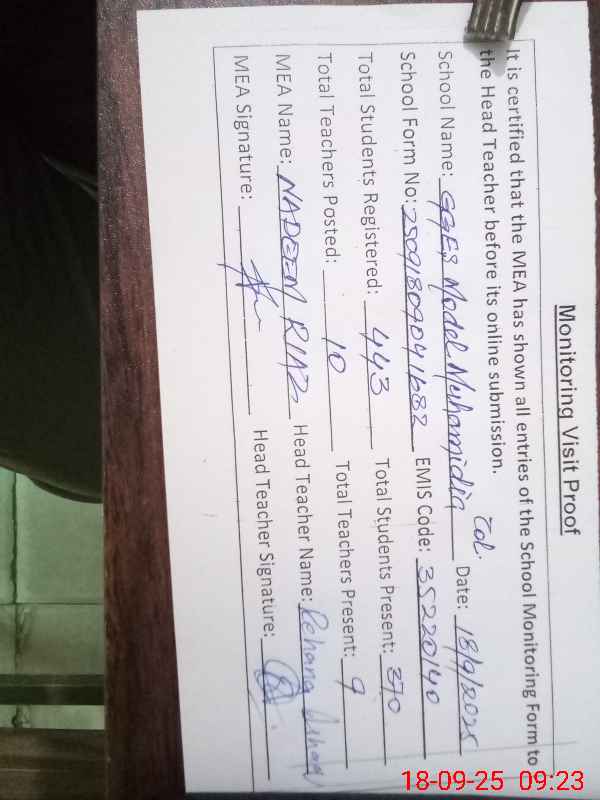 Monitoring Visit Proof
It is certified that the MEA has shown all entries of the School Monitoring Form to
the Head Teacher before its online submission.
School Name: GGES Model Muhamidia Col. Date: 18/9/2025
School Form No: 25091809041682 EMIS Code: 35220140
Total Students Registered: 443 Total Students Present: 370
Total Teachers Posted: 10 Total Teachers Present: 9
MEA Name: NADEEM RIAZ Head Teacher Name: Rehana
MEA Signature: Head Teacher Signature:
18-09-25 09:23